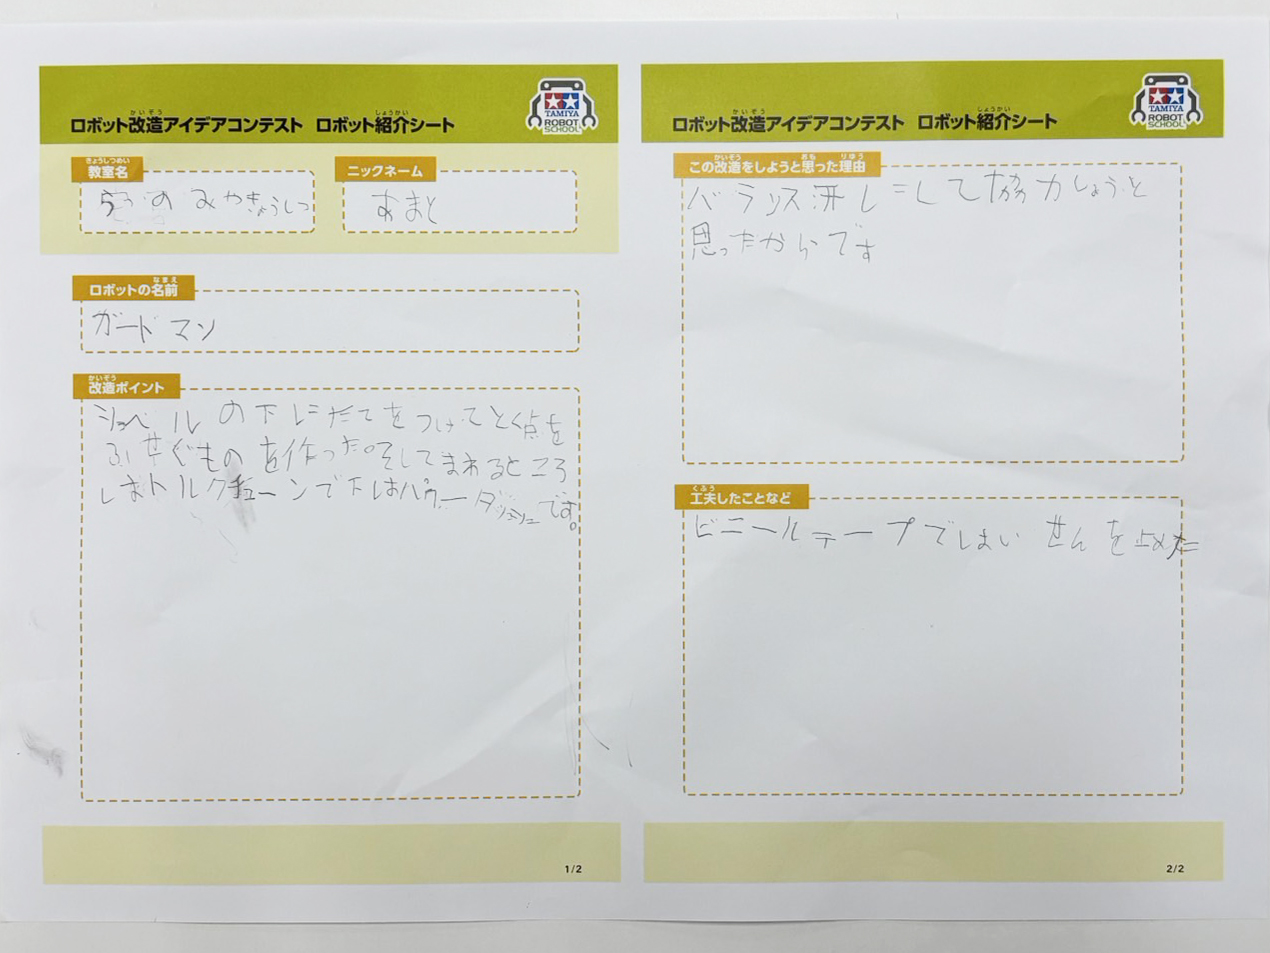 ロボット改造アイデアコンテスト ロボット紹介シート
かいぞう
しょうかい
TAMIYA
ROBOT
SCHOOL
きょうしつめい
教室名
うつのみやきょうしつ
ニックネーム
あまと
なまえ
ロボットの名前
ガードマン
かいぞう
改造ポイント
ショベルの下にたてをつけてとく点を
ふせぐものを作った。そしてまわるところ
はトルクチューンで下はパワーダッシュです。
1/2
ロボット改造アイデアコンテスト ロボット紹介シート
かいぞう
しょうかい
TAMIYA
ROBOT
SCHOOL
かいぞう おも りゆう
この改造をしようと思った理由
バランス型にして協力しようと
思ったからです
くふう
工夫したことなど
ビニールテープではいせんを止めた
2/2